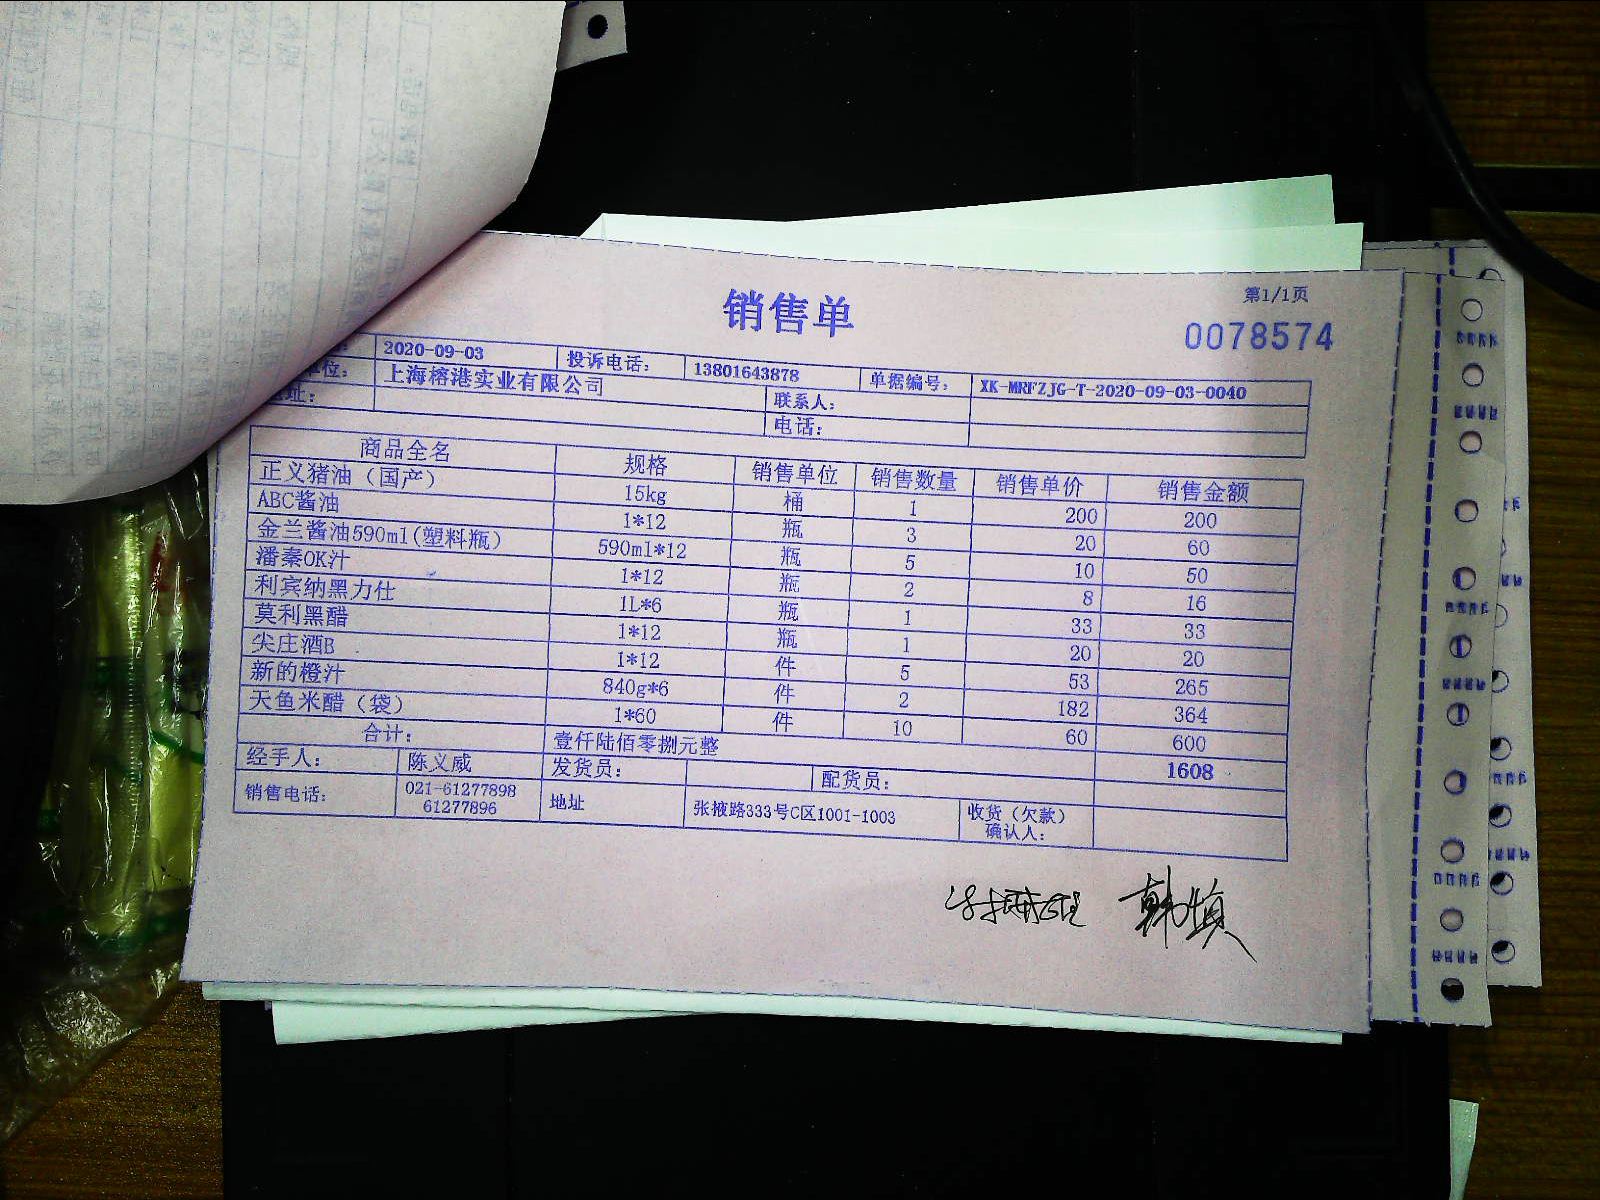 销售单
第1/1页
0078574
2020-09-03 投诉电话: 13801643878 单据编号: XK-MRFZJG-T-2020-09-03-0040
单位: 上海榕港实业有限公司 联系人:
址: 电话:
商品全名 规格 销售单位 销售数量 销售单价 销售金额
正义猪油(国产) 15kg 桶 1 200 200
ABC酱油 1*12 瓶 3 20 60
金兰酱油590ml(塑料瓶) 590ml*12 瓶 5 10 50
潘秦OK汁 1*12 瓶 2 8 16
利宾纳黑力仕 1L*6 瓶 1 33 33
莫利黑醋 1*12 瓶 1 20 20
尖庄酒B 1*12 件 5 53 265
新的橙汁 840g*6 件 2 182 364
天鱼米醋(袋) 1*60 件 10 60 600
合计: 壹仟陆佰零捌元整 1608
经手人: 陈义威 发货员: 配货员:
销售电话: 021-61277898 61277896 地址 张掖路333号C区1001-1003 收货(欠款)确认人: